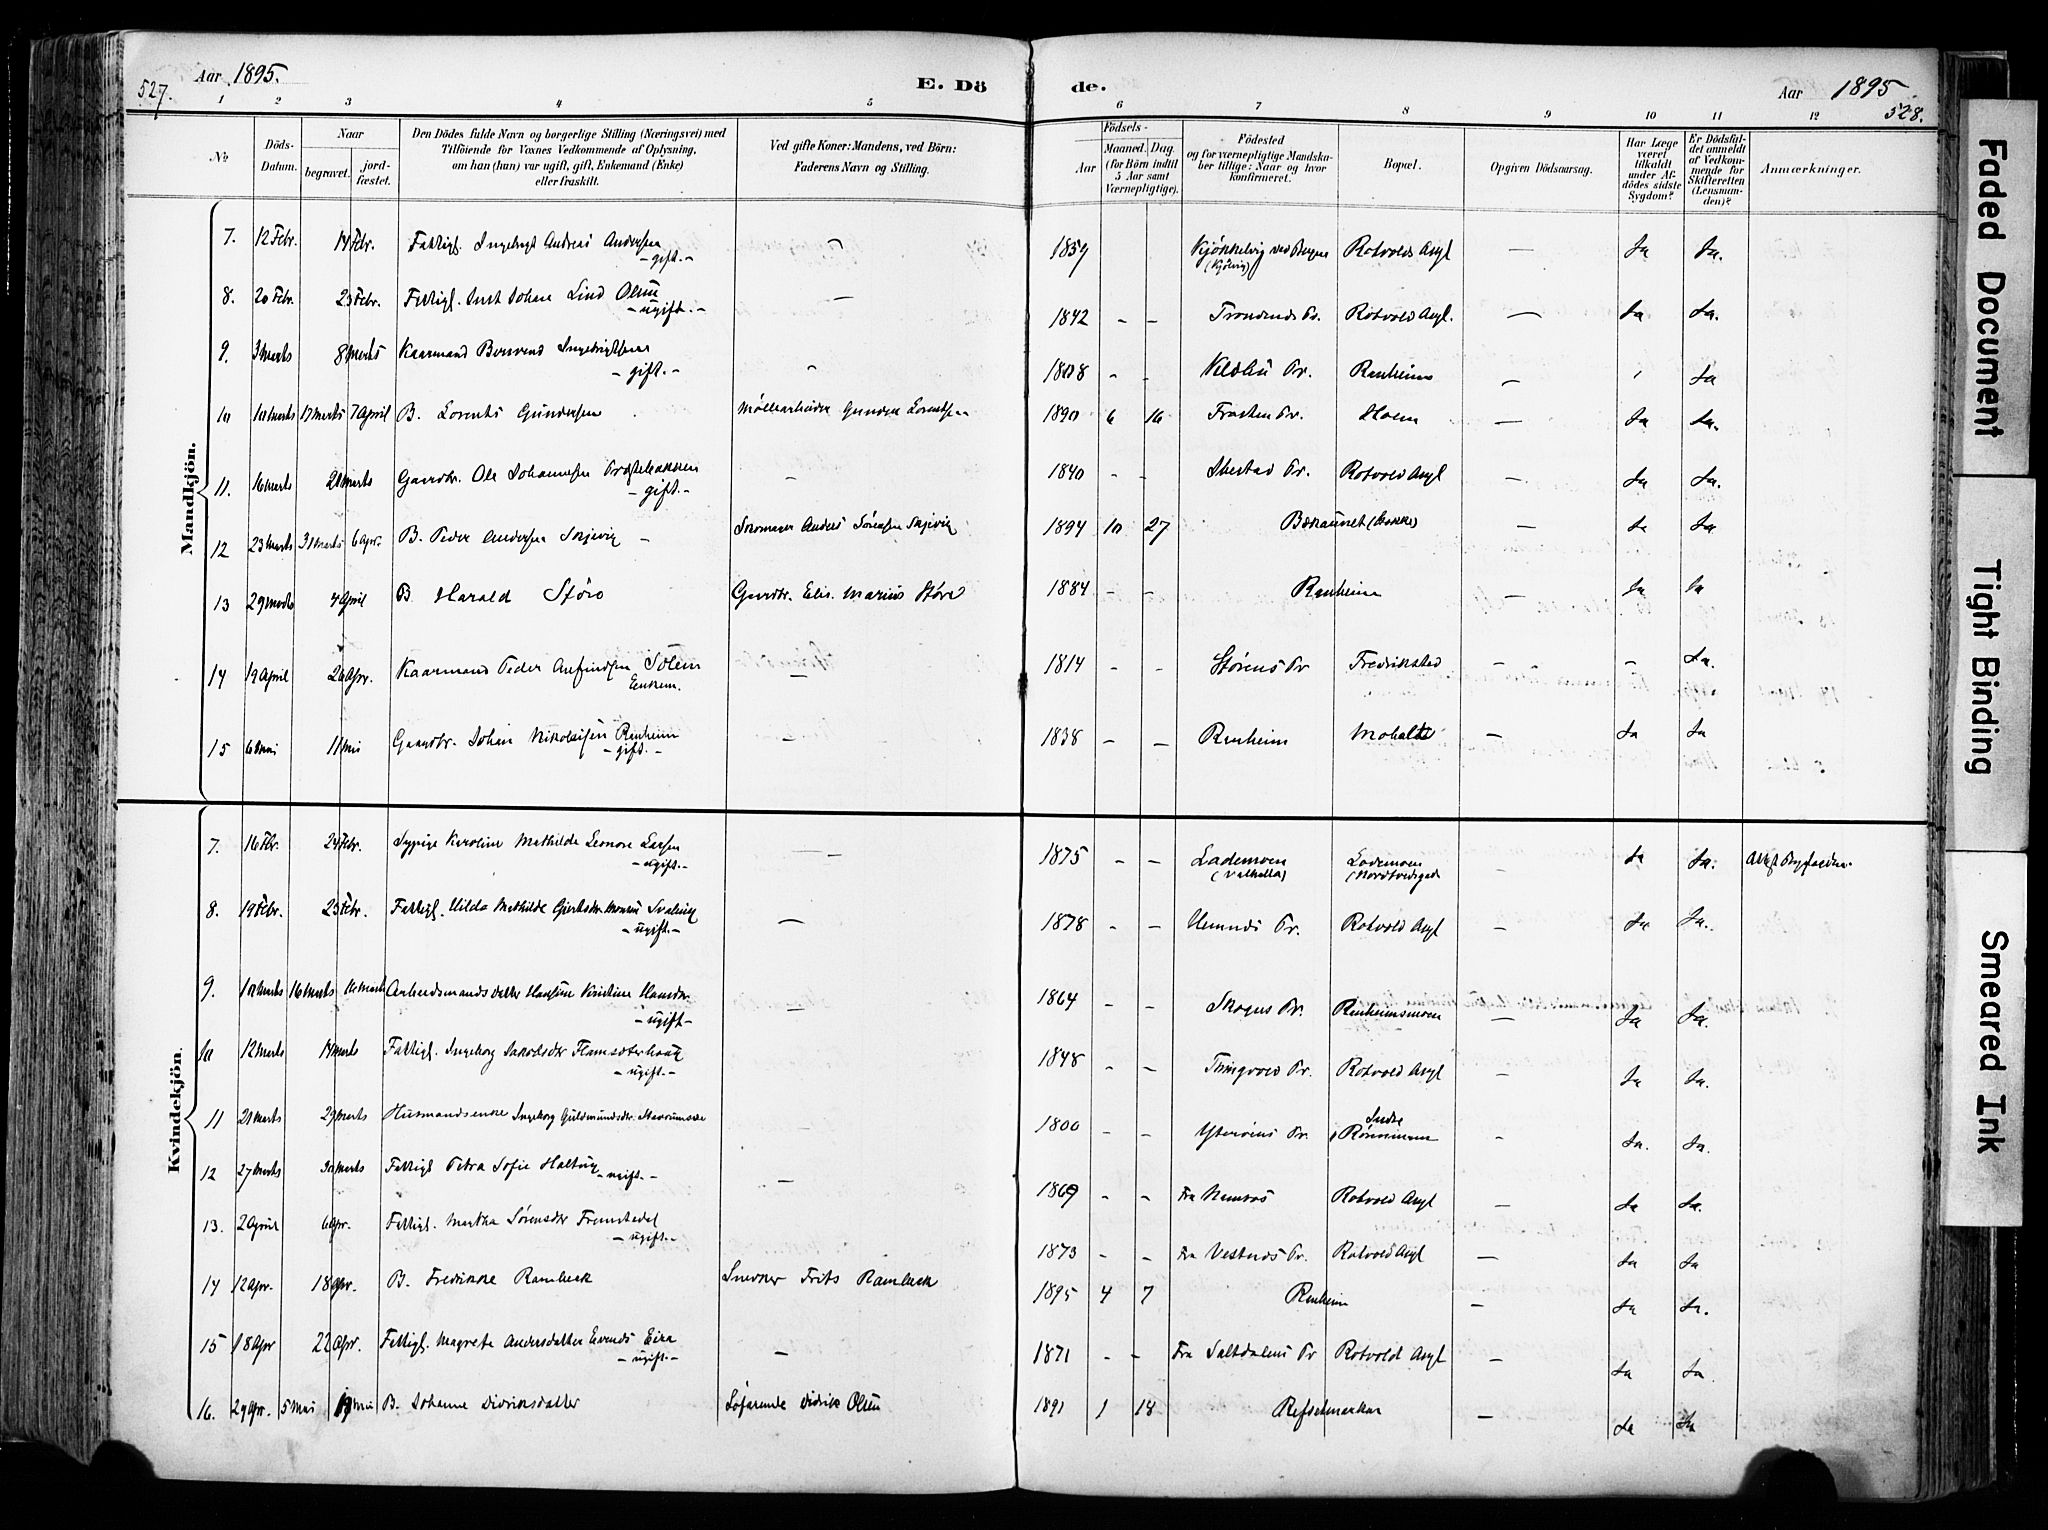 527.
Aar 1895.
E. Dö
de.
Aar 1895
528.
1 2 3 4 5 6 7 8 9 10 11 12
№
Döds-Datum.
Naar
begravet.
jordfæstet.
Den Dödes fulde Navn og borgerlige Stilling (Næringsvei) med
Tilföiende for Voxnes Vedkommende af Oplysning,
om han (hun) var ugift, gift, Enkemand (Enke)
eller fraskilt.
Ved gifte Koner: Mandens, ved Börn:
Faderens Navn og Stilling.
Födsels-
Aar
Maaned. Dag.
(for Börn indtil
5 Aar samt
Værnepligtige).
Födested
og for værnepligtige Mandskaber tillige: Naar og hvor
konfirmeret.
Bopæl.
Opgiven Dödsaarsag.
Har Læge
været
tilkaldt
under Afdödes sidste
Sygdom?
Er Dödsfaldet anmeldt
af Vedkommende for
Skifteretten
(Lensmanden)?
Anmærkninger.
Mandkjön.
7. 12 Febr. 14 Febr. Fattigl. Ingebrigt Andreas Andersen - gift. - — 1859 Kjøkkelvig ved Bergen Rotvolds Asyl — Ja Ja.
8. 20 Febr. 23 Febr. Fattigl. Just Johan Lind Olsen - ugift. - — 1842 - - Trondenes Pr. Rotvold Asyl. — Ja Ja.
9. 3 Marts 8 Marts Kaarmand Ingebrigtsen - gift. - — 1808 - - Pr. Ranheim — Ja
10 10 Marts 17 Marts 7 April B. Lorents Gundersen Møllearbeider Gunder Lorentsen 1890 6 16 Frosten Pr. Hoem — Ja Ja.
11. 16 Marts 21 Marts Gaardbr. Ole Johannesen Præstebakken - gift. - — 1840 - - Ibestad Pr. Rotvold Asyl — Ja Ja.
12 23 Marts 31 Marts 6 Apr. B. Peder Andersen Skjevig - Skomager Anders Sørensen Skjevig 1894 10 27 Bakaunet (Bakke) — Ja Ja
13 29 Marts 4 April B Harald Støre Gaardbr. Elis. Marius Støre 1884 - - Ranheim — Ja Ja
14 19 April 26 Apr. Kaarmand Peder Arnfindsen Solem Enkem. — 1814 - - Størens Pr Fredrikstad - - Ja.
15 6 Mai 11 Mai Gaardbr. Johan Nikolaisen Ranheim - gift. - — 1838 - - Ranheim Moholdt — Ja Ja
Kvindekjön.
7. 16 Febr. 24 Febr. Sypige Karoline Mathilde Leonore Larsen - ugift. - — 1875 - - Lademoen (Valhalla) Lademoen - Ja Ja.
8. 19 Febr. 23 Febr. Fattigl. Hilda Mathilde - ugift. - — 1878 - - Hemnes Pr. Rotvold Asyl - Ja Ja.
9. 10 Marts 16 Marts Arbeidsmands Datter Kristine Hansdr. - ugift - — 1864 - - Skogns Pr. Ranheimsmoen — Ja Ja.
10 12 Marts 14 Marts Fattigl. Ingeborg Jakobsdr - ugift. - 1848 - - Thingvold Pr. Rotvold Asyl - Ja Ja.
11 21 Marts 29 Marts Husmandsenke Ingeborg Guldmundsdr. - 1800 - - Yterøens Pr. Indre - Ja. Ja.
12 27 Marts 30 Marts Fattigl Petra Sofie - ugift. - — 1869 - - Fra Namsos Rotvold Asyl — Ja Ja.
13. 2 April 6 Apr. Fattigl. Martha Sørensdr - ugift. - 1873 - - Fra Vestnes Pr. Rotvold Asyl — Ja Ja
14 12 Apr. 18 Apr. B. Fredrikke Rambeck Snedker Frits Rambeck 1895 4 7 Ranheim — Ja Ja.
15 18 Apr 22 Apr. Fattigl. Magrete Andersdatter - ugift. - — 1871 - - Fra Saltdalens Pr Rotvold Asyl — Ja Ja.
16. 29 Apr. 5 Mai Mai B. Johanne Didriksdatter Søfarende Didrik Olsen 1891 1 18 — Ja Ja
Faded Document
Tight Binding
Smeared Ink